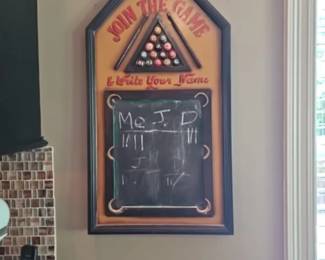 JOIN THE GAME
& Write Your Name
Me J. D